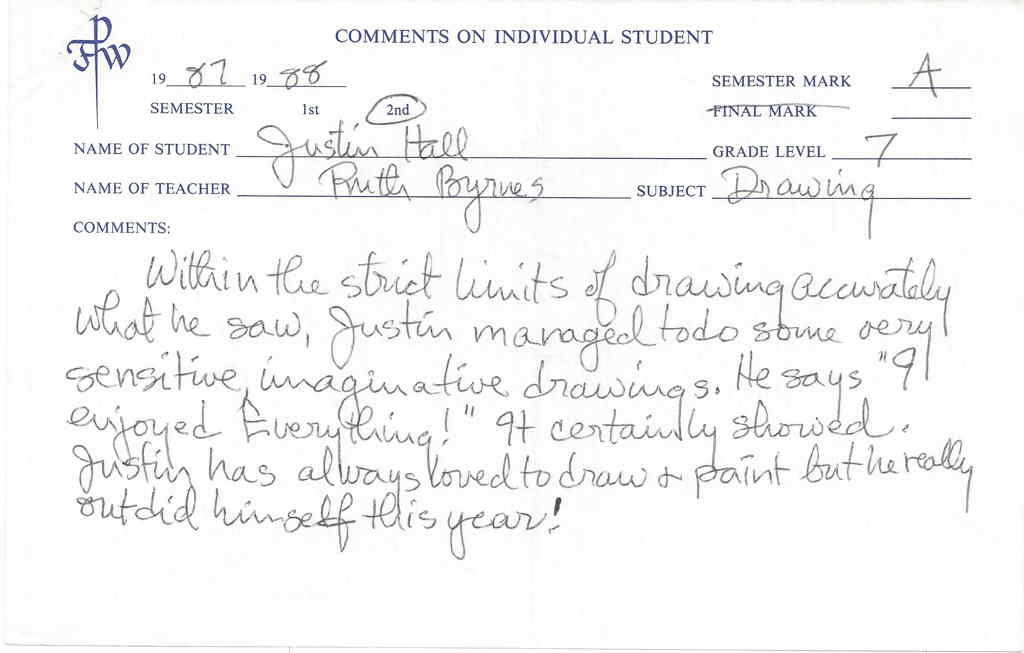 FPW
COMMENTS ON INDIVIDUAL STUDENT
19 87 19 88 SEMESTER MARK A
SEMESTER 1st 2nd FINAL MARK
NAME OF STUDENT Justin Hall GRADE LEVEL 7
NAME OF TEACHER Ruth Byrnes SUBJECT Drawing
COMMENTS:
Within the strict limits of drawing accurately
what he saw, Justin managed to do some very
sensitive, imaginative drawings. He says "I
enjoyed Everything!" It certainly showed.
Justin has always loved to draw & paint but he really
outdid himself this year!